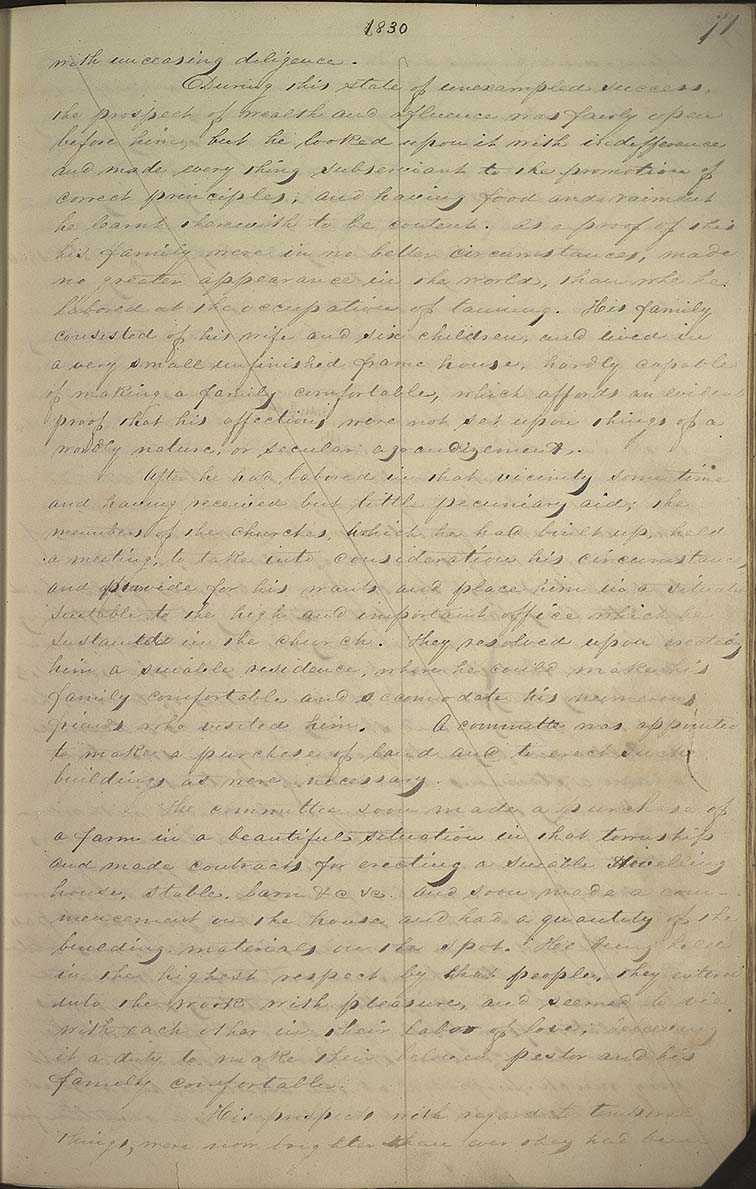 1830
71
with unceasing diligence.
During this state of unexampled success,
the prospect of wealth and affluence was fairly open
before him, but he looked upon it with indifference
and made every thing subserviant to the promotion of
correct principles; and having food and raiment
he learnt therewith to be content. As a proof of this
his family were in no better circumstances, made
no greater appearance in the world, than when he
labored at the occupation of tanning. His family
consisted of his wife and six children, and lived in
a very small unfinished frame house, hardly capable
of making a family comfortable, which affords an evident
proof that his affections were not set upon things of a
worldly nature, or secular aggrandizement.
After he had labored in that vicinity some time
and having received but little pecuniary aid; the
members of the churches, which he had built up, held
a meeting, to take into consideration his circumstances
and provide for his wants and place him in a
suitable to the high and important office which he
in the church. They resolved upon erecting
him a suiable residence, where he could make his
family comfortable and accomodate his numerous
friends who visited him. A committe was appointed
to make a purchase of land and to erect such
buildings as were necessary.
The committee soon made a purchase of
a farm in a beautiful situation in that township
and made contracts for erecting a suiable dwelling
house, stable, barn &c &c. and soon made a com-
mencement on the house and had a quantity of the
building materials on the spot. He being held
in the highest respect by that people, they entered
into the work with pleasure, and seemed to vie
with each other in their labor of love, believing
it a duty to make their beloved pastor and his
family comfortable.
His prospects with regard to temporal
things, were now brighter than ever they had been